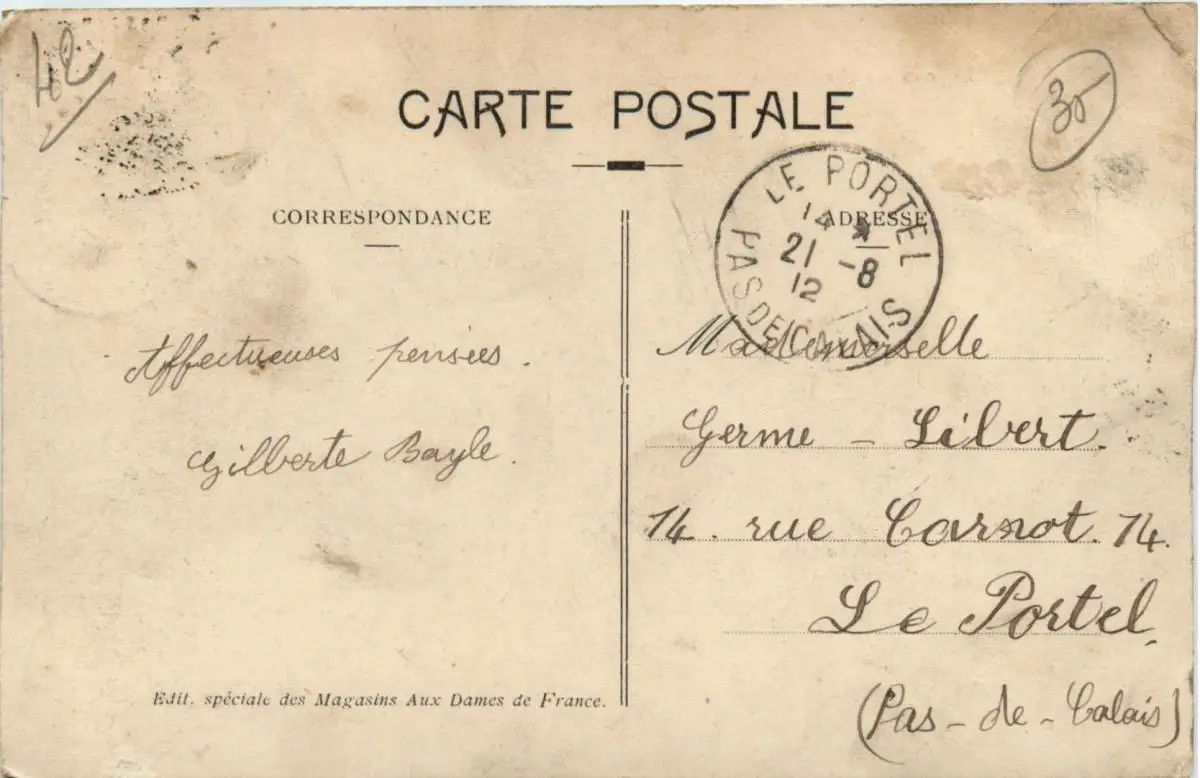 42
CARTE POSTALE
30
CORRESPONDANCE
ADRESSE
LE PORTEL
14 *
21 -8
12
PAS DE CALAIS
Affectueuses pensées.
Gilberte Bayle.
Mademoiselle
Germe - Libert.
14. rue Carnot. 14.
Le Portel,
(Pas-de-Calais)
Edit. spéciale des Magasins Aux Dames de France.